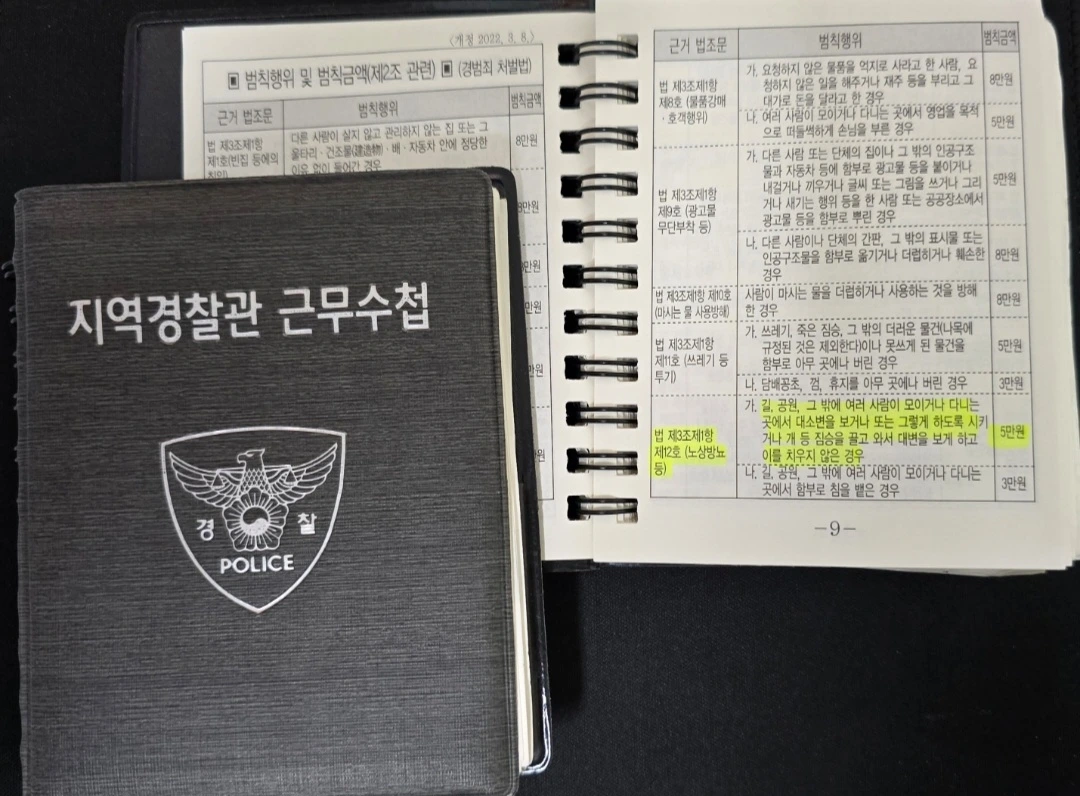 <개정 2022. 3. 8.>
▣ 범칙행위 및 범칙금액(제2조 관련) ▣ (경범죄 처벌법)
근거 법조문 범칙행위 범칙금액
법 제3조제1항
제1호(빈집 등에의
다른 사람이 살지 않고 관리하지 않는 집 또는 그
울타리·건조물(建造物)·배·자동차 안에 정당한
이유 없이 들어간 경우
8만원
8만원
만원
만원
만원
만원
지역경찰관 근무수첩
경 찰
POLICE
근거 법조문 범칙행위 범칙금액
법 제3조제1항
제8호 (물품강매
·호객행위)
가. 요청하지 않은 물품을 억지로 사라고 한 사람, 요
청하지 않은 일을 해주거나 재주 등을 부리고 그
대가로 돈을 달라고 한 경우
8만원
나. 여러 사람이 모이거나 다니는 곳에서 영업을 목적
으로 떠들썩하게 손님을 부른 경우
5만원
법 제3조제1항
제9호 (광고물
무단부착 등)
가. 다른 사람 또는 단체의 집이나 그 밖의 인공구조
물과 자동차 등에 함부로 광고물 등을 붙이거나
내걸거나 끼우거나 글씨 또는 그림을 쓰거나 그리
거나 새기는 행위 등을 한 사람 또는 공공장소에서
광고물 등을 함부로 뿌린 경우
5만원
나. 다른 사람이나 단체의 간판, 그 밖의 표시물 또는
인공구조물을 함부로 옮기거나 더럽히거나 훼손한
경우
8만원
법 제3조제1항 제10호
(마시는 물 사용방해)
사람이 마시는 물을 더럽히거나 사용하는 것을 방해
한 경우
8만원
법 제3조제1항
제11호 (쓰레기 등
투기)
가. 쓰레기, 죽은 짐승, 그 밖의 더러운 물건(나목에
규정된 것은 제외한다)이나 못쓰게 된 물건을
함부로 아무 곳에나 버린 경우
5만원
나. 담배꽁초, 껌, 휴지를 아무 곳에나 버린 경우
3만원
법 제3조제1항
제12호 (노상방뇨
등)
가. 길, 공원, 그 밖에 여러 사람이 모이거나 다니는
곳에서 대소변을 보거나 또는 그렇게 하도록 시키
거나 개 등 짐승을 끌고 와서 대변을 보게 하고
이를 치우지 않은 경우
5만원
나. 길, 공원, 그 밖에 여러 사람이 모이거나 다니는
곳에서 함부로 침을 뱉은 경우
3만원
-9-